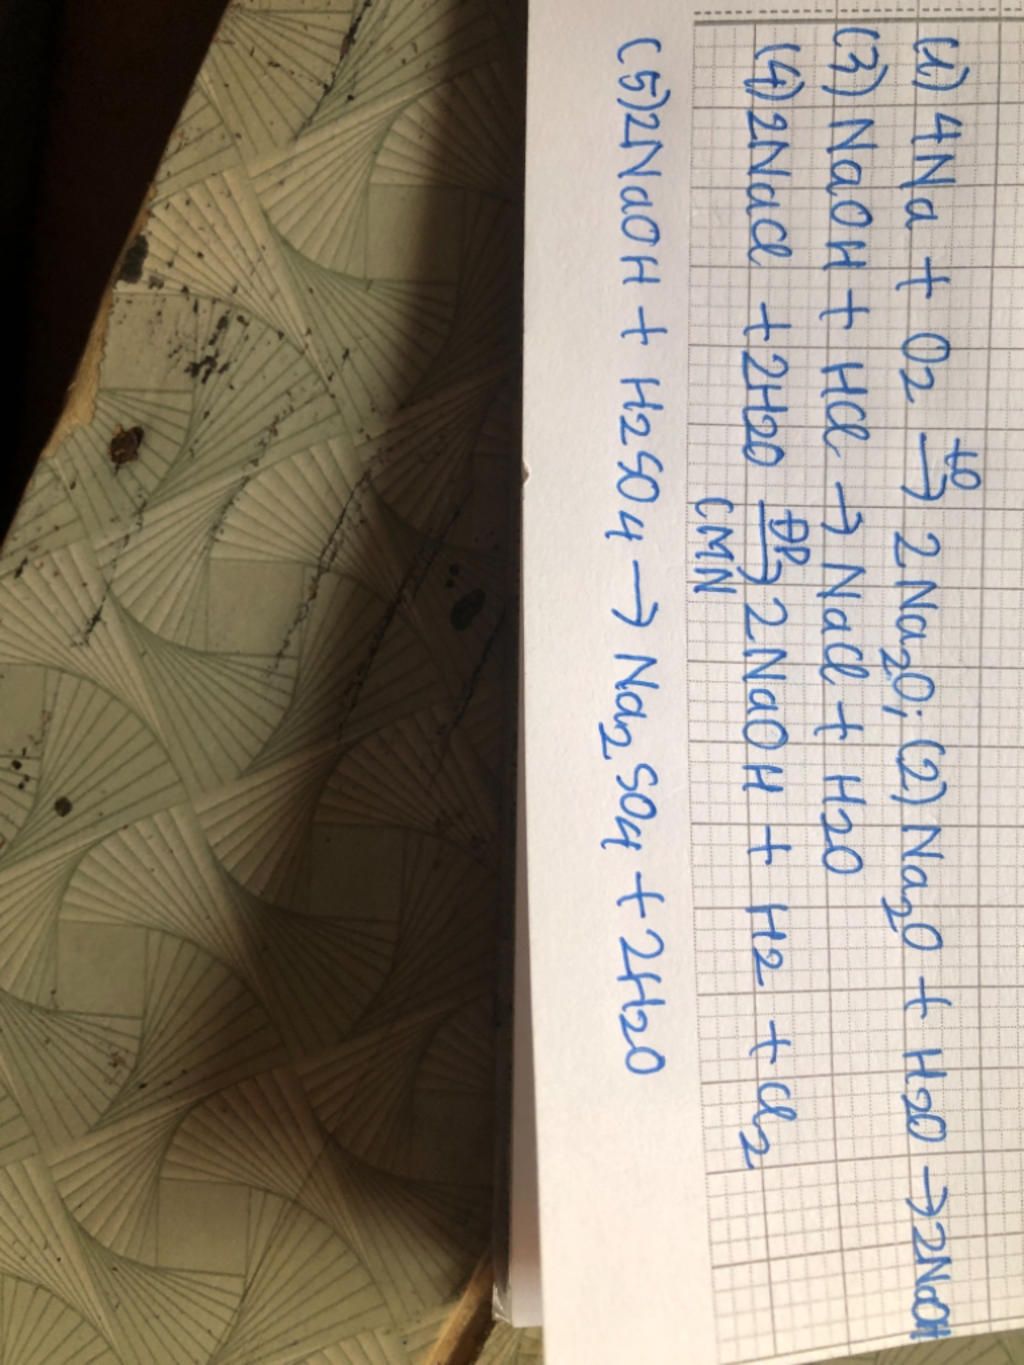 (1) 4Na + O2 →^{t0} 2Na₂O; (2) Na₂O + H2O → 2NaOH
(3) NaOH + HCl → NaCl + H2O
(4) 2NaCl + 2H2O →^{ĐP} 2NaOH + H2 + Cl₂
CMN
(5) 2NaOH + H2SO4 → Na₂SO4 + 2H2O